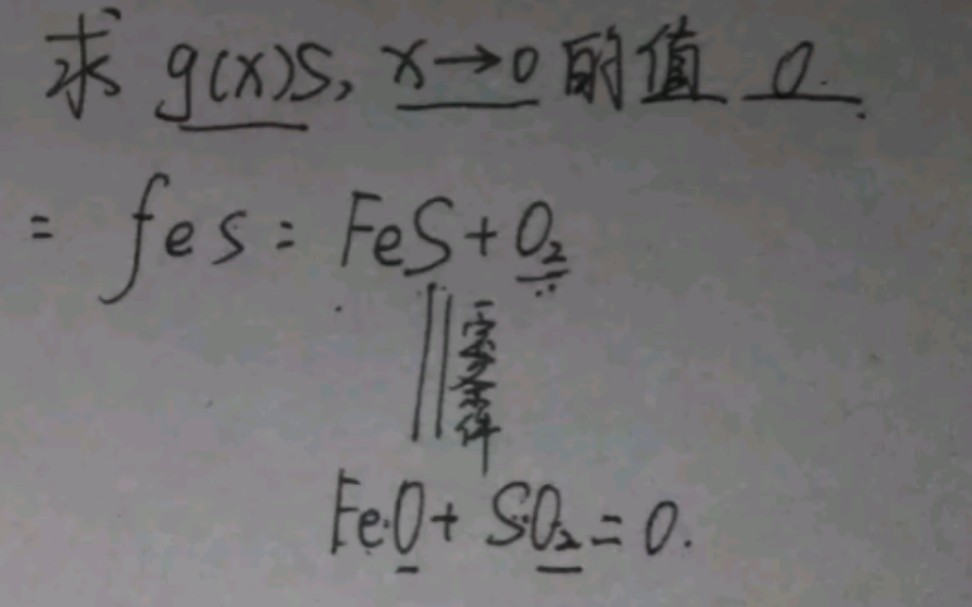 求 g(x)S, x→0 的值 0.
= fes = FeS + O₂
一定条件
FeO + SO₂ = 0.